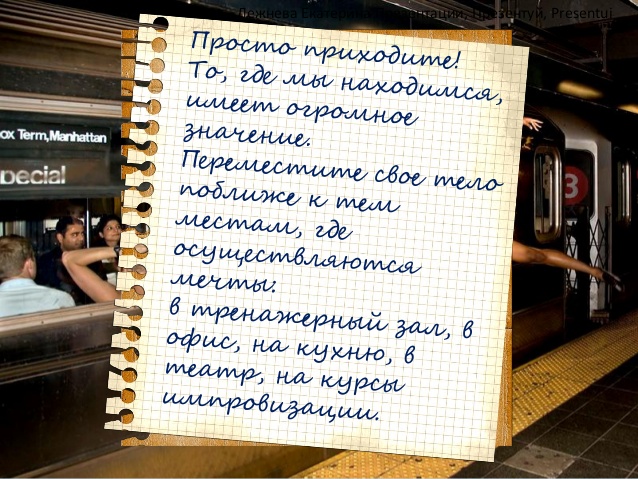 Лежнева Екатерина, Презентации, Презентуй, Presentui
Просто приходите!
То, где мы находимся,
имеет огромное
значение.
Переместите свое тело
поближе к тем
местам, где
осуществляются
мечты:
в тренажерный зал, в
офис, на кухню, в
театр, на курсы
импровизации.
ox Term,Manhattan
pecial
3